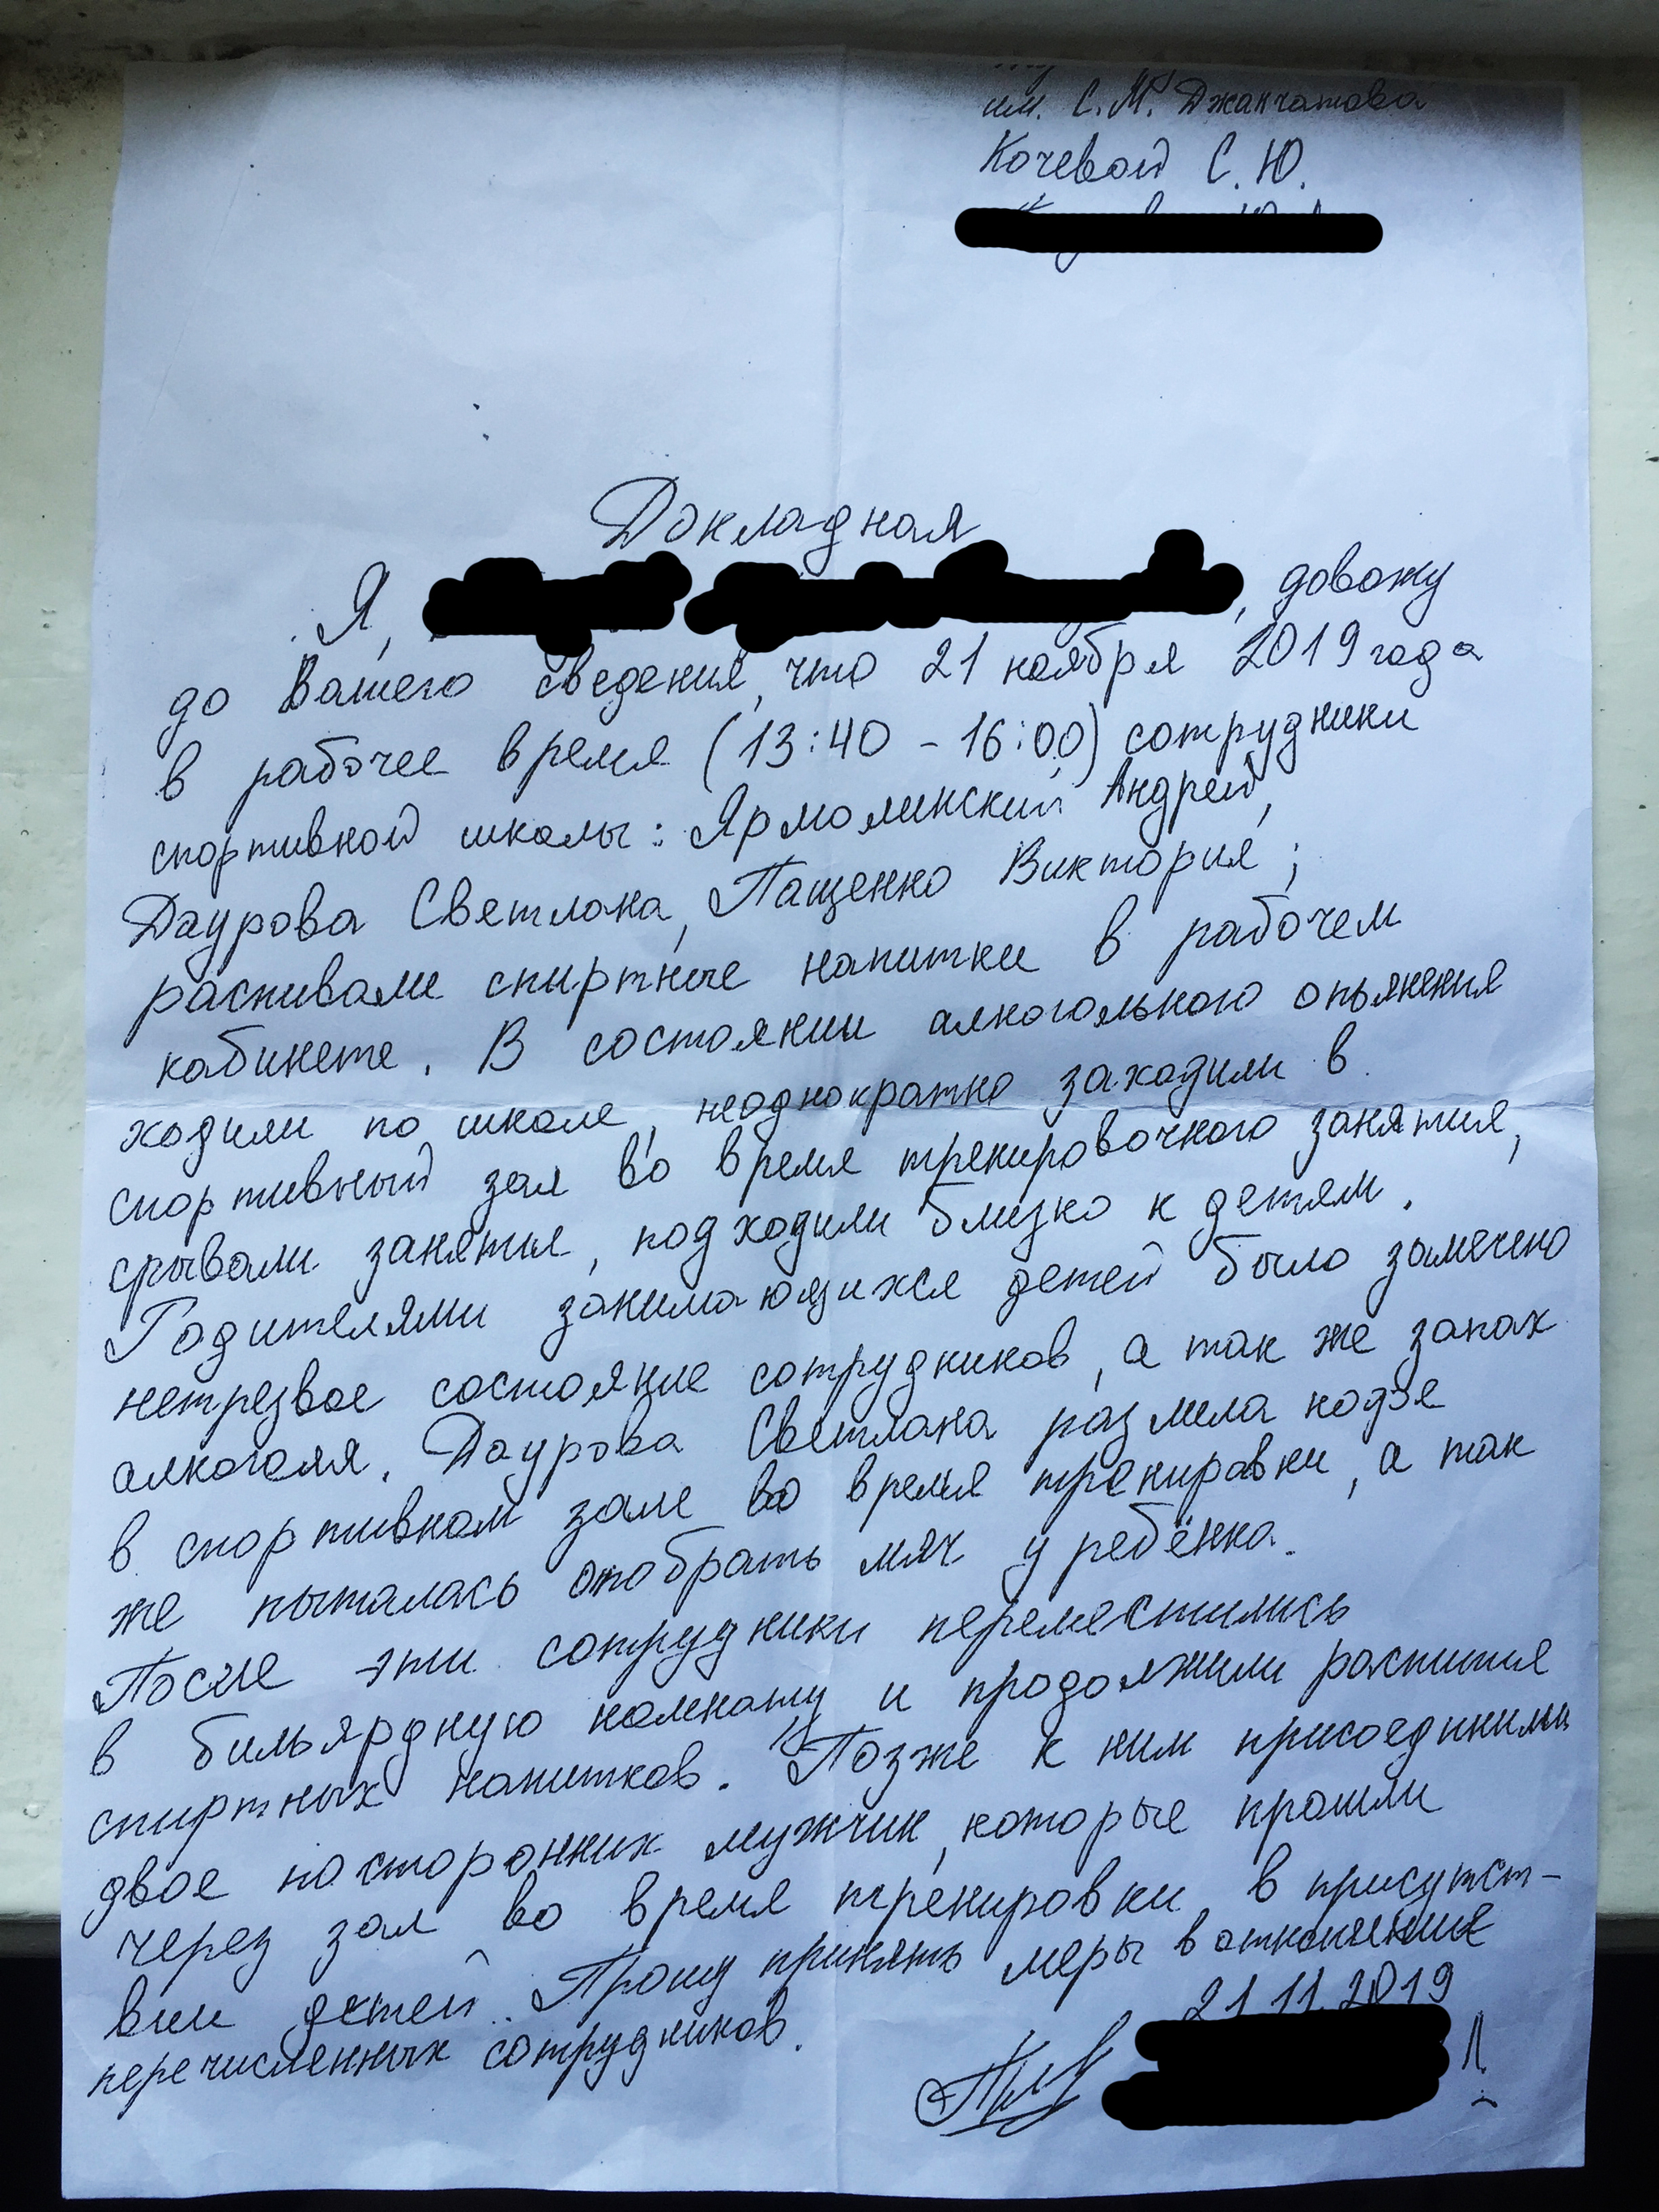 им. С.М. Джанчатова
Кочевой С.Ю.
Докладная
Я, , довожу
до Вашего сведения, что 21 ноября 2019 года
в рабочее время (13:40 - 16:00) сотрудники
спортивной школы: Ярмолинский Андрей,
Даурова Светлана, Пащенко Виктория;
распивали спиртные напитки в рабочем
кабинете. В состоянии алкогольного опьянения
ходили по школе, неоднократно заходили в
спортивный зал во время тренировочного занятия,
срывали занятия, подходили близко к детям.
Родителями занимающихся детей было замечено
нетрезвое состояние сотрудников, а так же запах
алкоголя. Даурова Светлана
в спортивном зале во время тренировки, а так
же пыталась отобрать мяч у ребёнка.
После эти сотрудники переместились
в бильярдную комнату и продолжили распитие
спиртных напитков. Позже к ним присоединились
двое посторонних мужчин, которые прошли
через зал во время тренировки в присутст-
вии детей. Прошу принять меры в отношении
перечисленных сотрудников.
21.11.2019
Л.